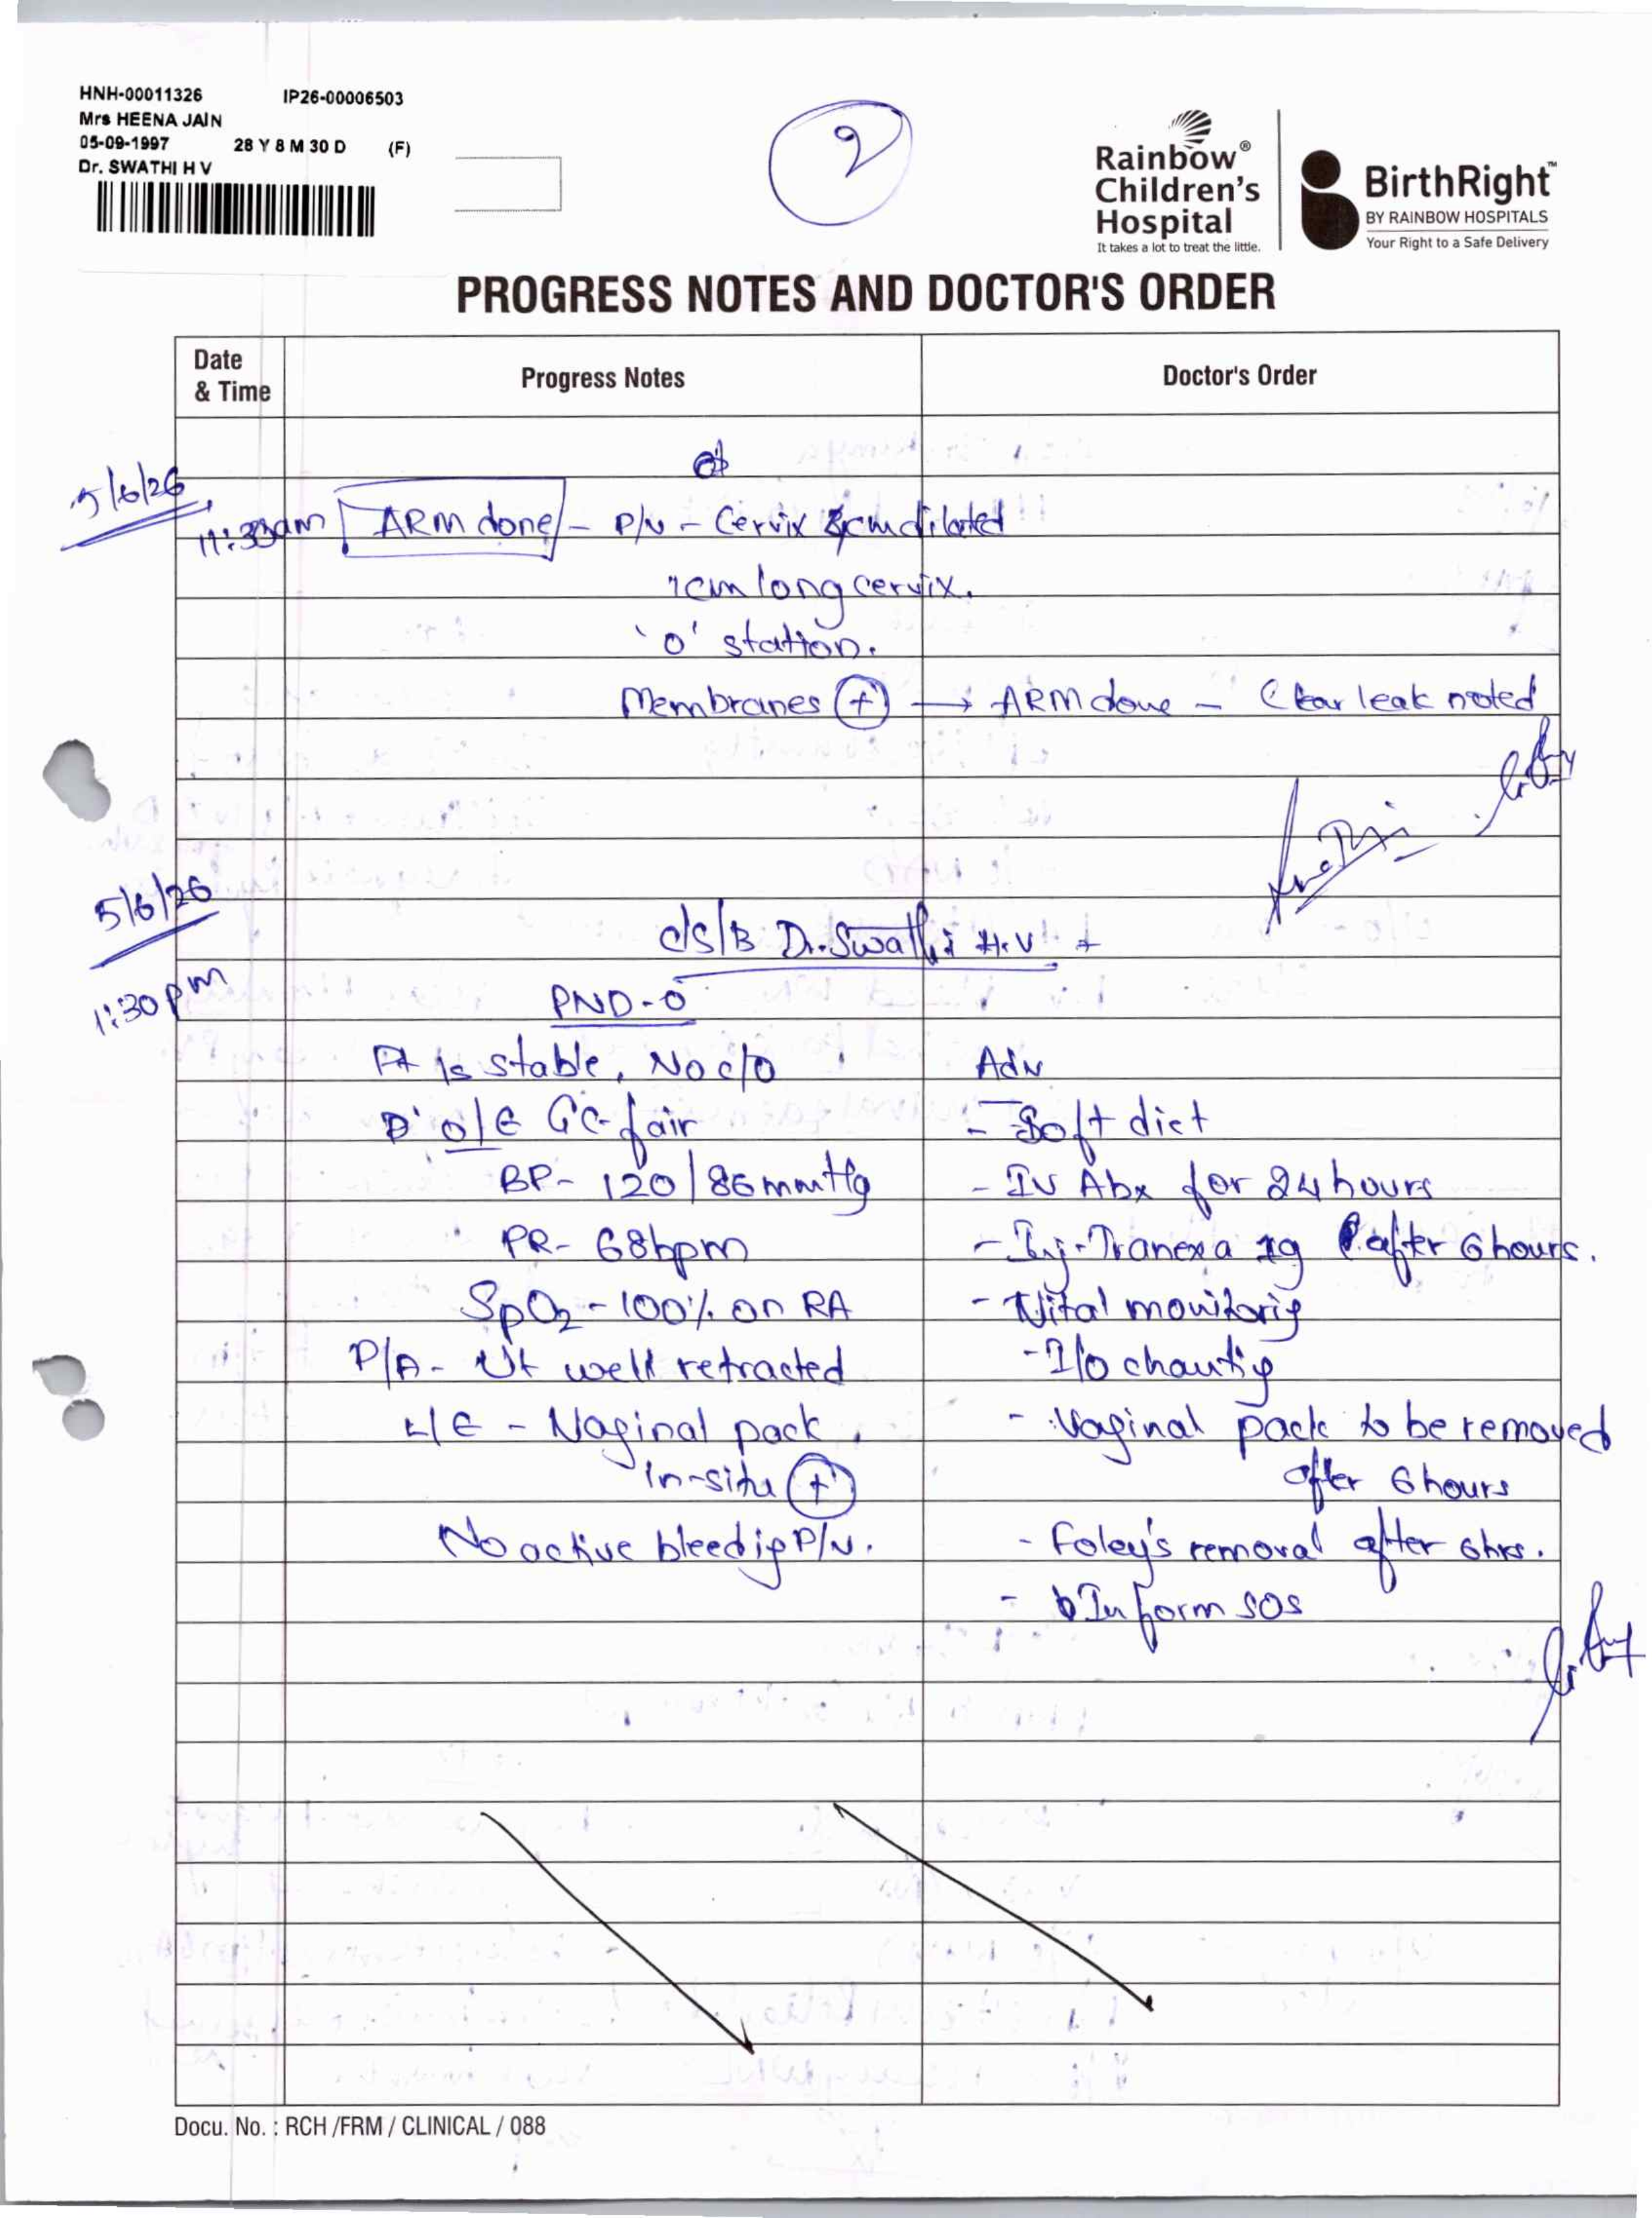 HNH-00011326 IP26-00006503
Mrs HEENA JAIN
05-09-1997 28 Y 8 M 30 D (F)
Dr. SWATHI H V
2
Rainbow®
Children's
Hospital
It takes a lot to treat the little.
BirthRight™
BY RAINBOW HOSPITALS
Your Right to a Safe Delivery
PROGRESS NOTES AND DOCTOR'S ORDER
Date
& Time
Progress Notes
Doctor's Order
5/6/26
ARM done - P/V - Cervix dilated
1cm long cervix.
'0' station.
Membranes (+) → ARM done - Clear leak noted
5/6/26
1:30pm
C/S/B Dr. Swathi H.V +
PND-0
Pt is stable, No c/o
Adv
O/E GC-fair
- Soft diet
BP- 120/86mmHg
- IV Abx for 24 hours
PR- 68bpm
- Inj-Tranexa 1g after 6 hours.
SpO2 - 100% on RA
- Vital monitorig
P/A - Ut well retracted
- I/O chautig
L/E - Vaginal pack
- Vaginal pack to be removed
In-situ (+)
after 6 hours
No active bleedig P/V.
- Foley's removal after 6hrs.
- Inform SOS
Docu. No. : RCH /FRM / CLINICAL / 088